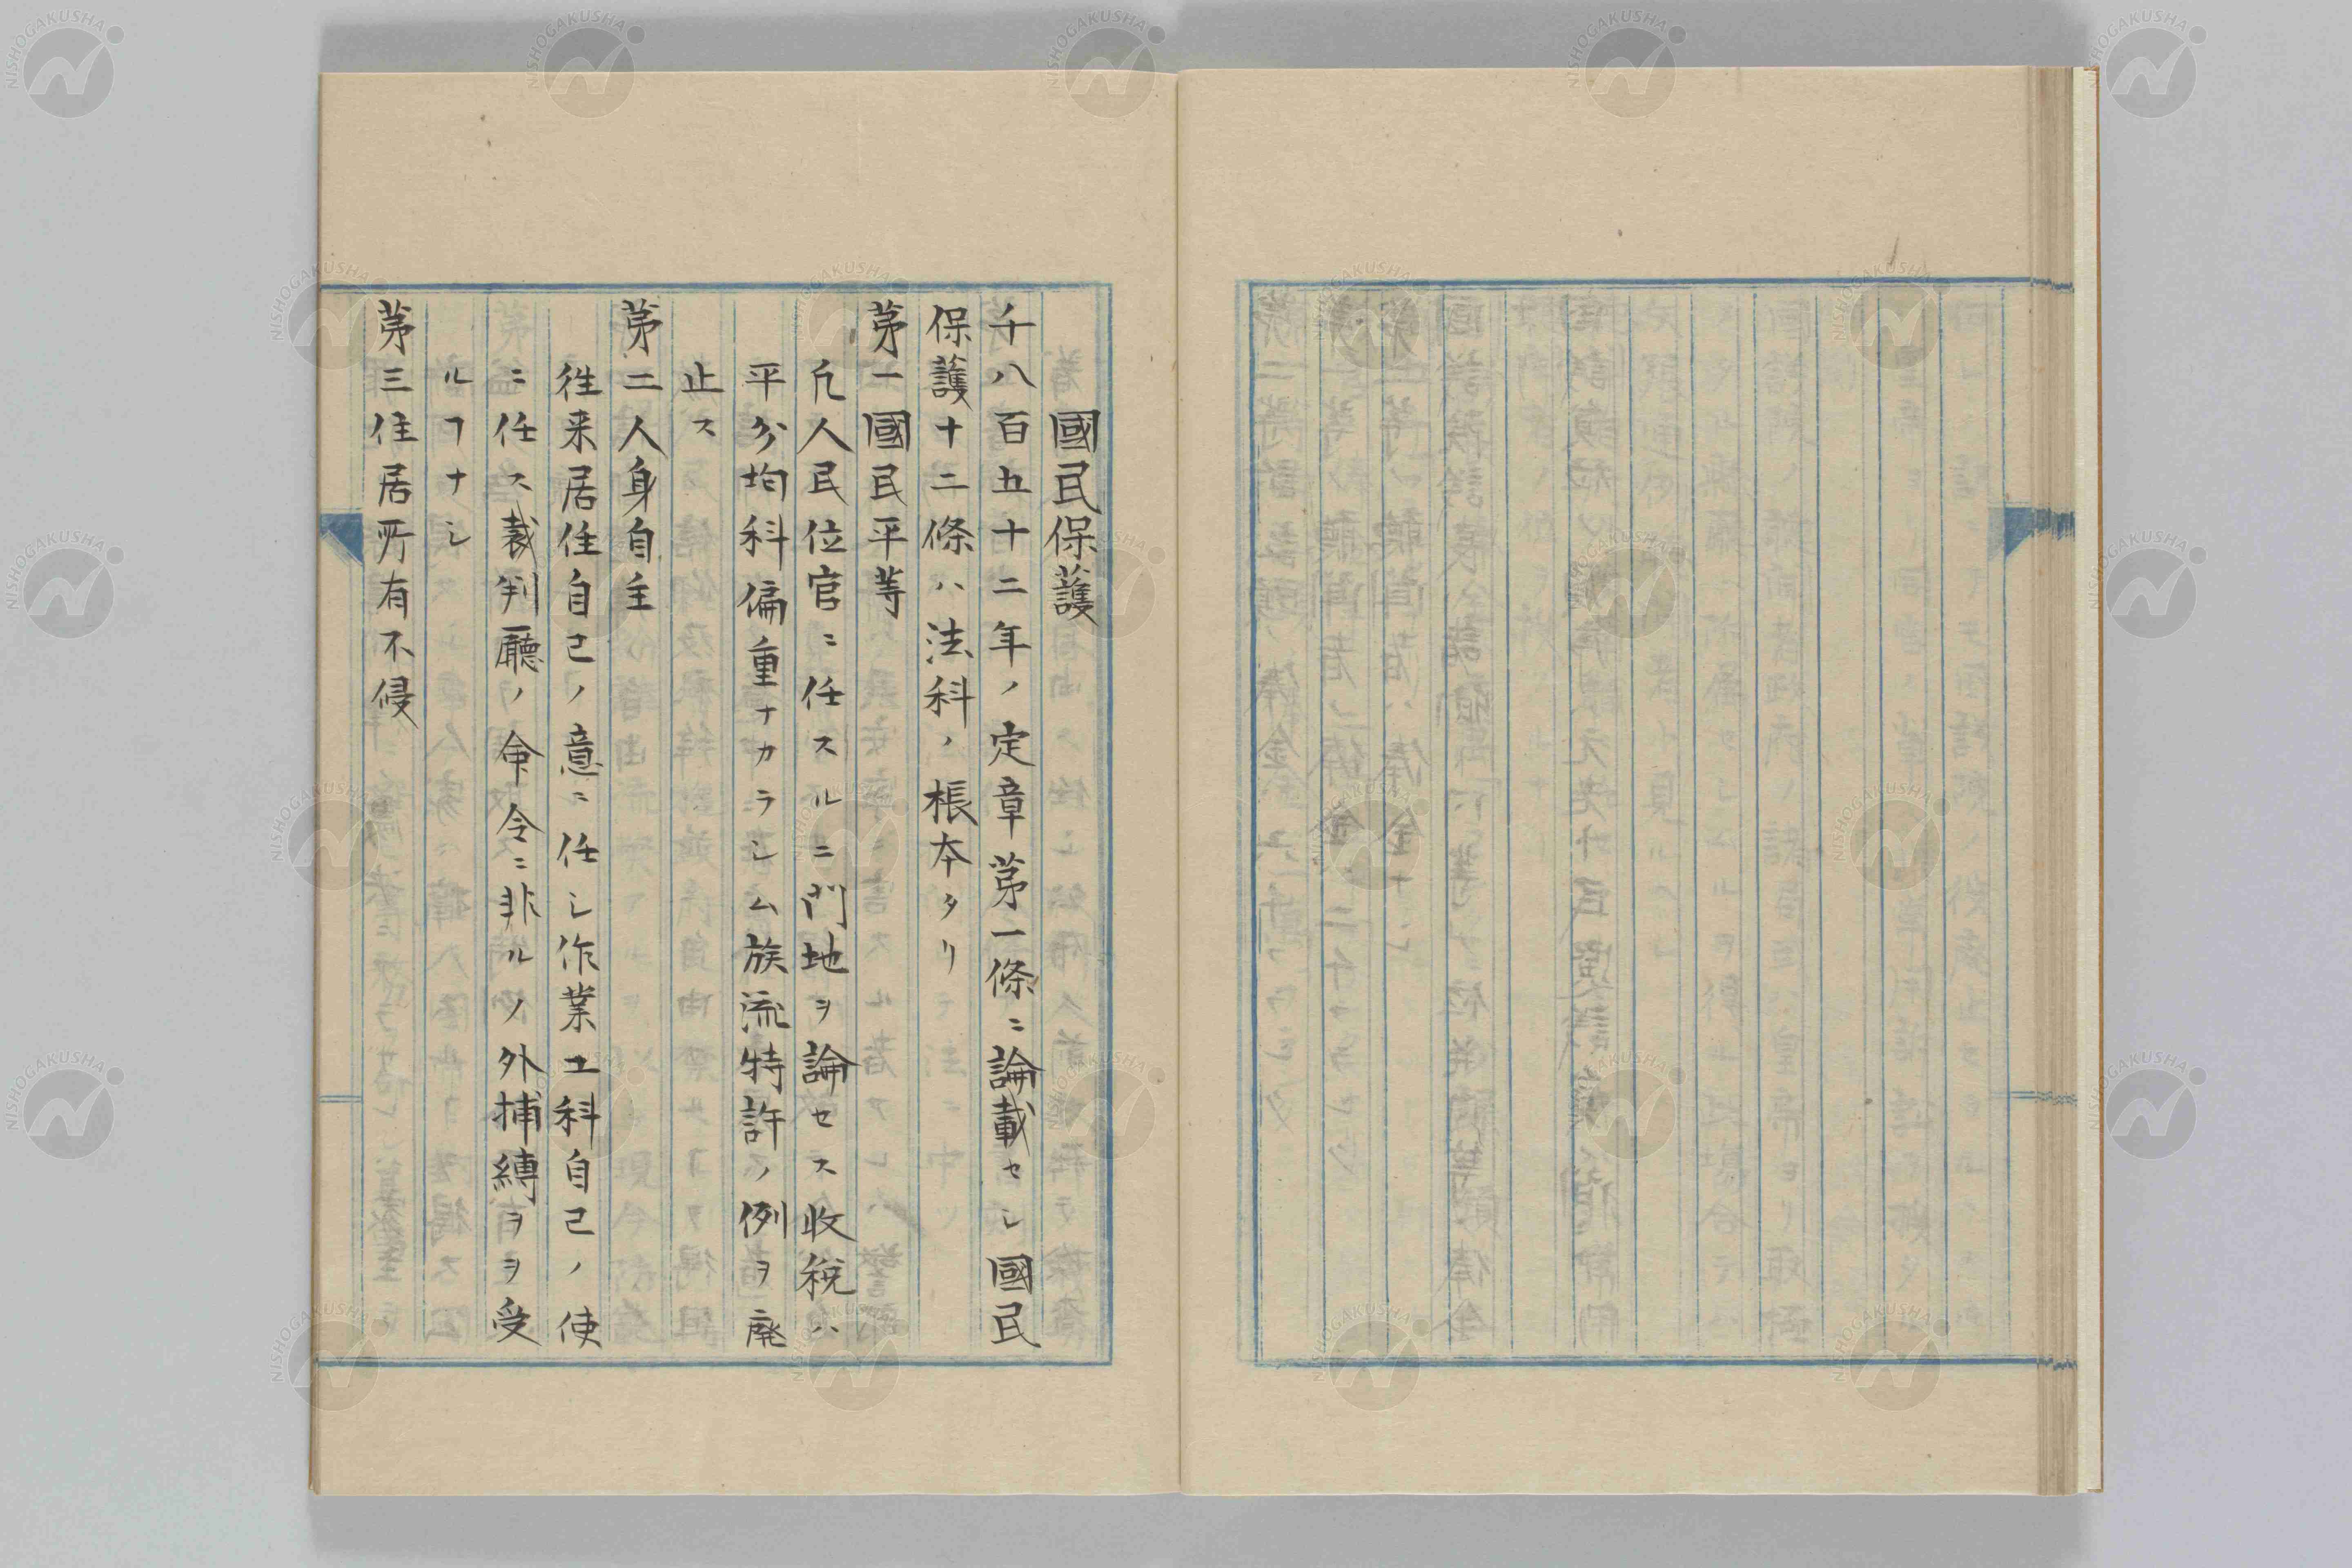 國民保護
千八百五十二年ノ定章第一條ニ論載セシ國民
保護十二條ハ法科ノ根本タリ
第一國民平等
凢人民位官ニ任スルニ門地ヲ論セス收税ハ
平分均科偏重ナカラシム族流特許ノ例ヲ廃
止ス
第二人身自主
徃来居住自己ノ意ニ任シ作業工科自己ノ使
ニ任ス裁判廳ノ命令ニ非ルノ外捕縛ヲヲ受
ルヿナシ
第三住居所有不侵
NISHOGAKUSHA